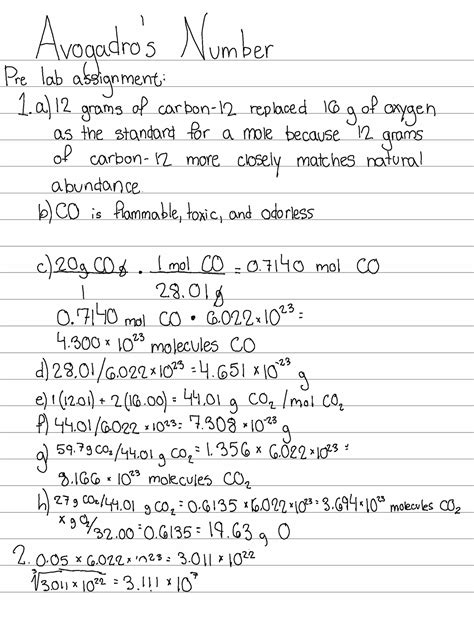 Avogadro's Number
Pre lab assignment:
1. a) 12 grams of carbon-12 replaced 16 g of oxygen
as the standard for a mole because 12 grams
of carbon-12 more closely matches natural
abundance
b) CO is flammable, toxic, and odorless
c) 20g CO g/1 · 1 mol CO/28.01g = 0.7140 mol CO
0.7140 mol CO • 6.022×10²³ =
4.300 × 10²³ molecules CO
d) 28.01/6.022×10²³ = 4.651 × 10⁻²³ g
e) 1(12.01) + 2(16.00) = 44.01 g CO₂/mol CO₂
f) 44.01/6.022×10²³ = 7.308 × 10⁻²³ g
g) 59.7g CO₂/44.01 g CO₂ = 1.356 × 6.022×10²³ =
8.166 × 10²³ molecules CO₂
h) 27 g CO₂/44.01 g CO₂ = 0.6135 × 6.022×10²³ = 3.694×10²³ molecules CO₂
× g O₂/32.00 = 0.6135 = 19.63 g O
2. 0.05 × 6.022×10²³ = 3.011 × 10²²
∛3.011 × 10²² = 3.111 × 10⁷